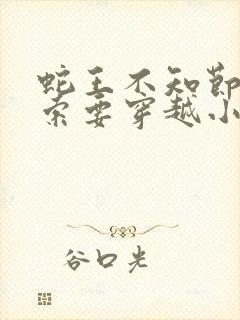 蛇王不知節
索要穿越小
谷口光